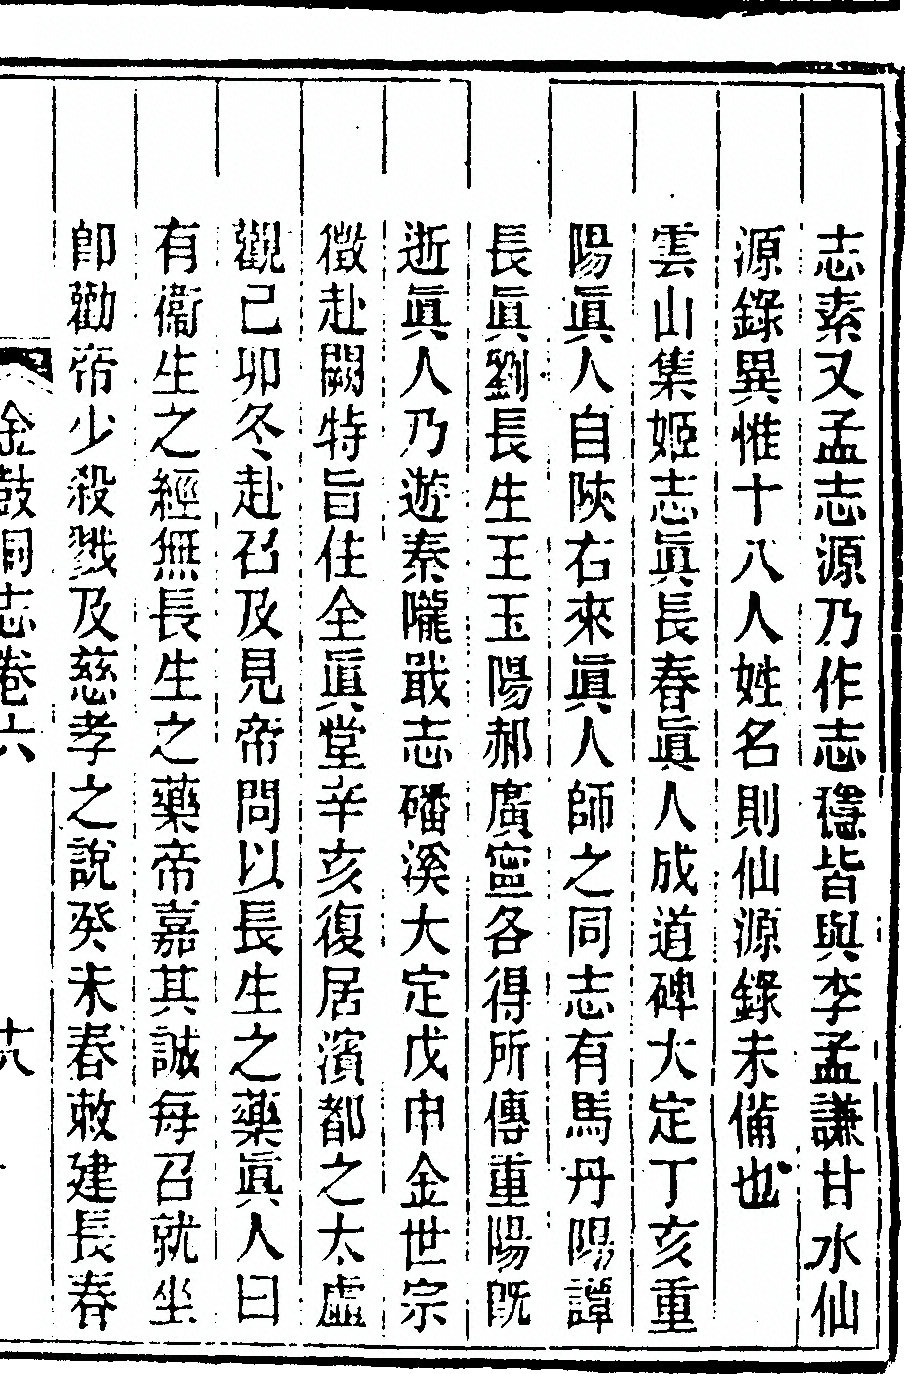 志素又孟志源乃作志穩皆與李孟謙甘水仙
源錄異惟十八人姓名則仙源錄未備也
雲山集姬志眞長春眞人成道碑大定丁亥重
陽眞人自陝右來眞人師之同志有馬丹陽譚
長眞劉長生王玉陽郝廣寧各得所傳重陽旣
逝眞人乃遊秦隴戢志磻溪大定戊申金世宗
徵赴闕特旨住全眞堂辛亥復居濱都之太虛
觀己卯冬赴召及見帝問以長生之藥眞人曰
有衞生之經無長生之藥帝嘉其誠每召就坐
卽勸帝少殺戮及慈孝之說癸未春敕建長春
金鼓洞志卷六
十八